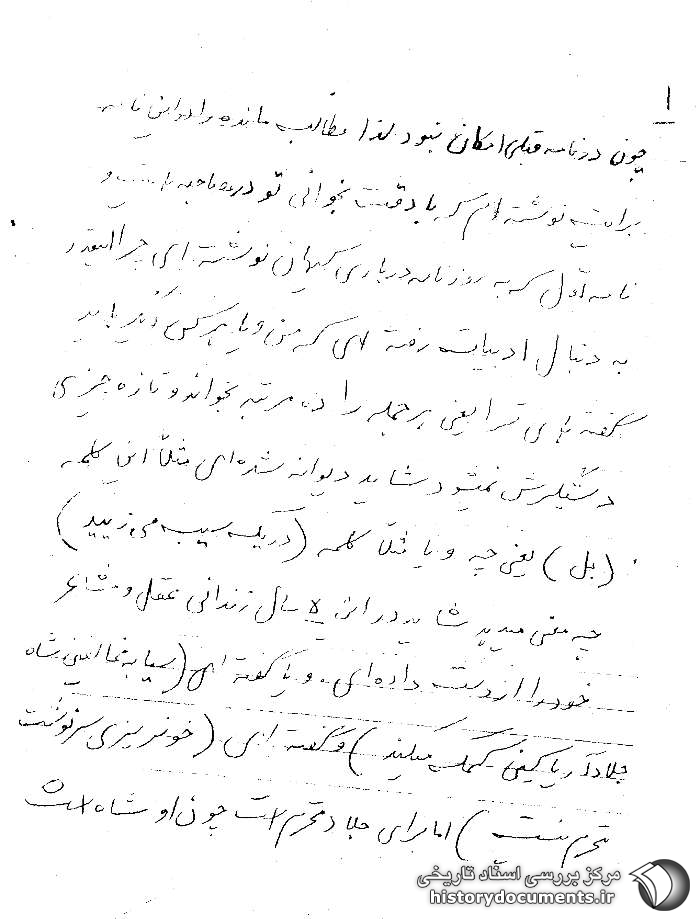 ۱
چون در نامه قبلی امکان نبود لذا مطالب مانده را در این نامه
برایت نوشته‌ام که با دقت بخوانی تو در مصاحبه‌هایت و
نامه اول که به روزنامه درباری کیهان نوشته‌ای چرا اینقدر
به دنبال ادبیات رفته‌ای که من و یا هر کس دیگر باید
گفته‌های ترا یعنی هر جمله را ده مرتبه بخواند و تازه چیزی
دستگیرش نمیشود شاید دیوانه شده‌ای مثلاً این کلمه
(بل) یعنی چه و یا مثلاً کلمه (دریک سیب می‌زیید)
چه معنی میدهد شاید در این ۵ سال زندانی عقل و مشاعر
خود را از دست داده‌ای. و یا گفته‌ای (شاه
جلاد آریا کمک میکند) و گفته‌ای (خونریزی سرنوشت
محترم نیست) اما برای جلاد محترم است چون او شاه است
مرکز بررسی اسناد تاریخی
historydocuments.ir